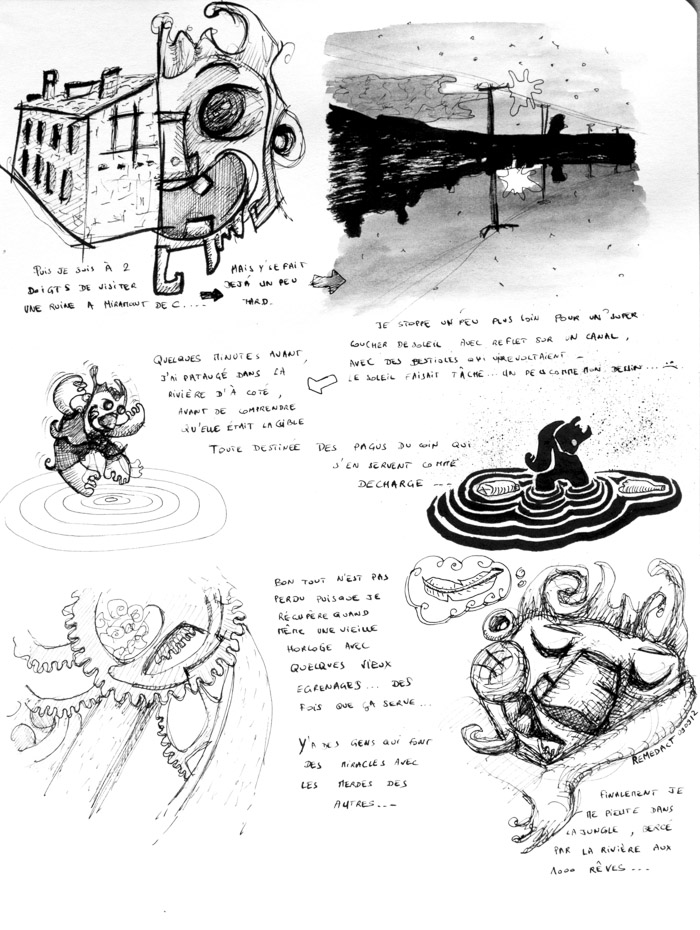 PUIS JE SUIS À 2
DOIGTS DE VISITER
UNE RUINE A MIRAMONT DE C....
MAIS Y'SE FAIT
DEJÀ UN PEU
TARD.
JE STOPPE UN PEU PLUS LOIN POUR UN SUPER
COUCHER DE SOLEIL AVEC REFLET SUR UN CANAL,
AVEC DES BESTIOLES QUI VIREVOLTAIENT -
LE SOLEIL FAISAIT TÂCHE... UN PEU COMME MON DESSIN...
QUELQUES MINUTES AVANT,
J'AI PATAUGÉ DANS LA
RIVIÈRE D'À COTÉ,
AVANT DE COMPRENDRE
QU'ELLE ÉTAIT LA CIBLE
TOUTE DESTINÉE DES PAGUS DU COIN QUI
S'EN SERVENT COMME
DECHARGE ...
BON TOUT N'EST PAS
PERDU PUISQUE JE
RÉCUPÈRE QUAND
MÊME UNE VIEILLE
HORLOGE AVEC
QUELQUES VIEUX
EGRENAGES... DES
FOIS QUE ÇA SERVE...
Y'A DES GENS QUI FONT
DES MIRACLES AVEC
LES MERDES DES
AUTRES...
REMEDACT
FINALEMENT JE
ME PIEUTE DANS
LA JUNGLE, BERCÉ
PAR LA RIVIÈRE AUX
1000 RÊVES...